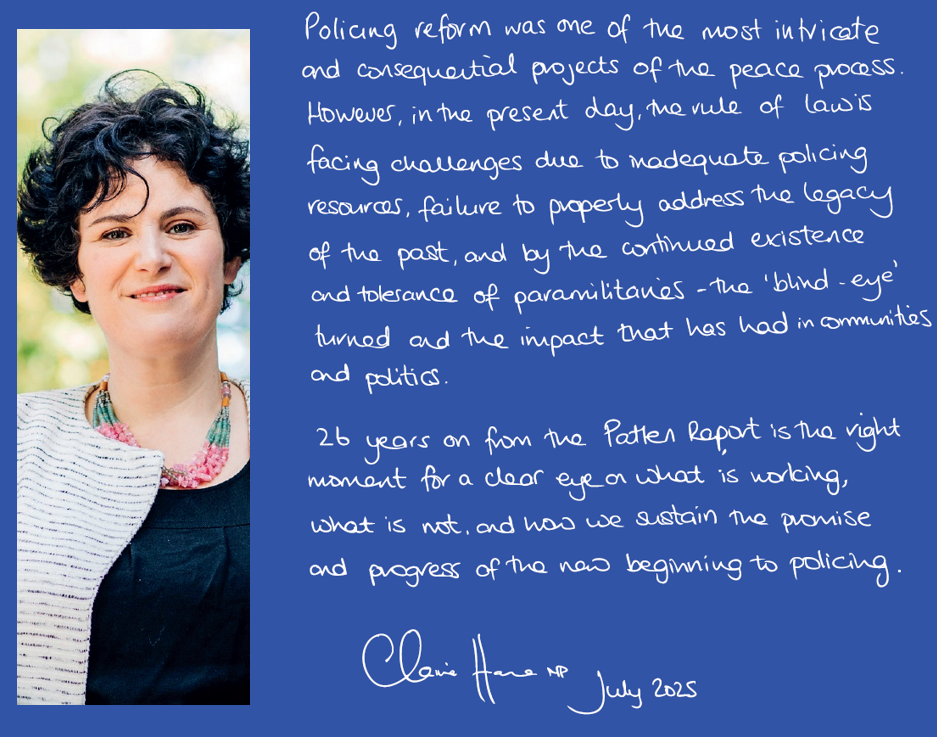 Policing reform was one of the most intricate
and consequential projects of the peace process.
However, in the present day, the rule of law is
facing challenges due to inadequate policing
resources, failure to properly address the legacy
of the past, and by the continued existence
and tolerance of paramilitaries - the 'blind-eye'
turned and the impact that has had in communities
and politics.
26 years on from the Patten Report is the right
moment for a clear eye on what is working,
what is not, and how we sustain the promise
and progress of the new beginning to policing.
Claire Hanna MP July 2025